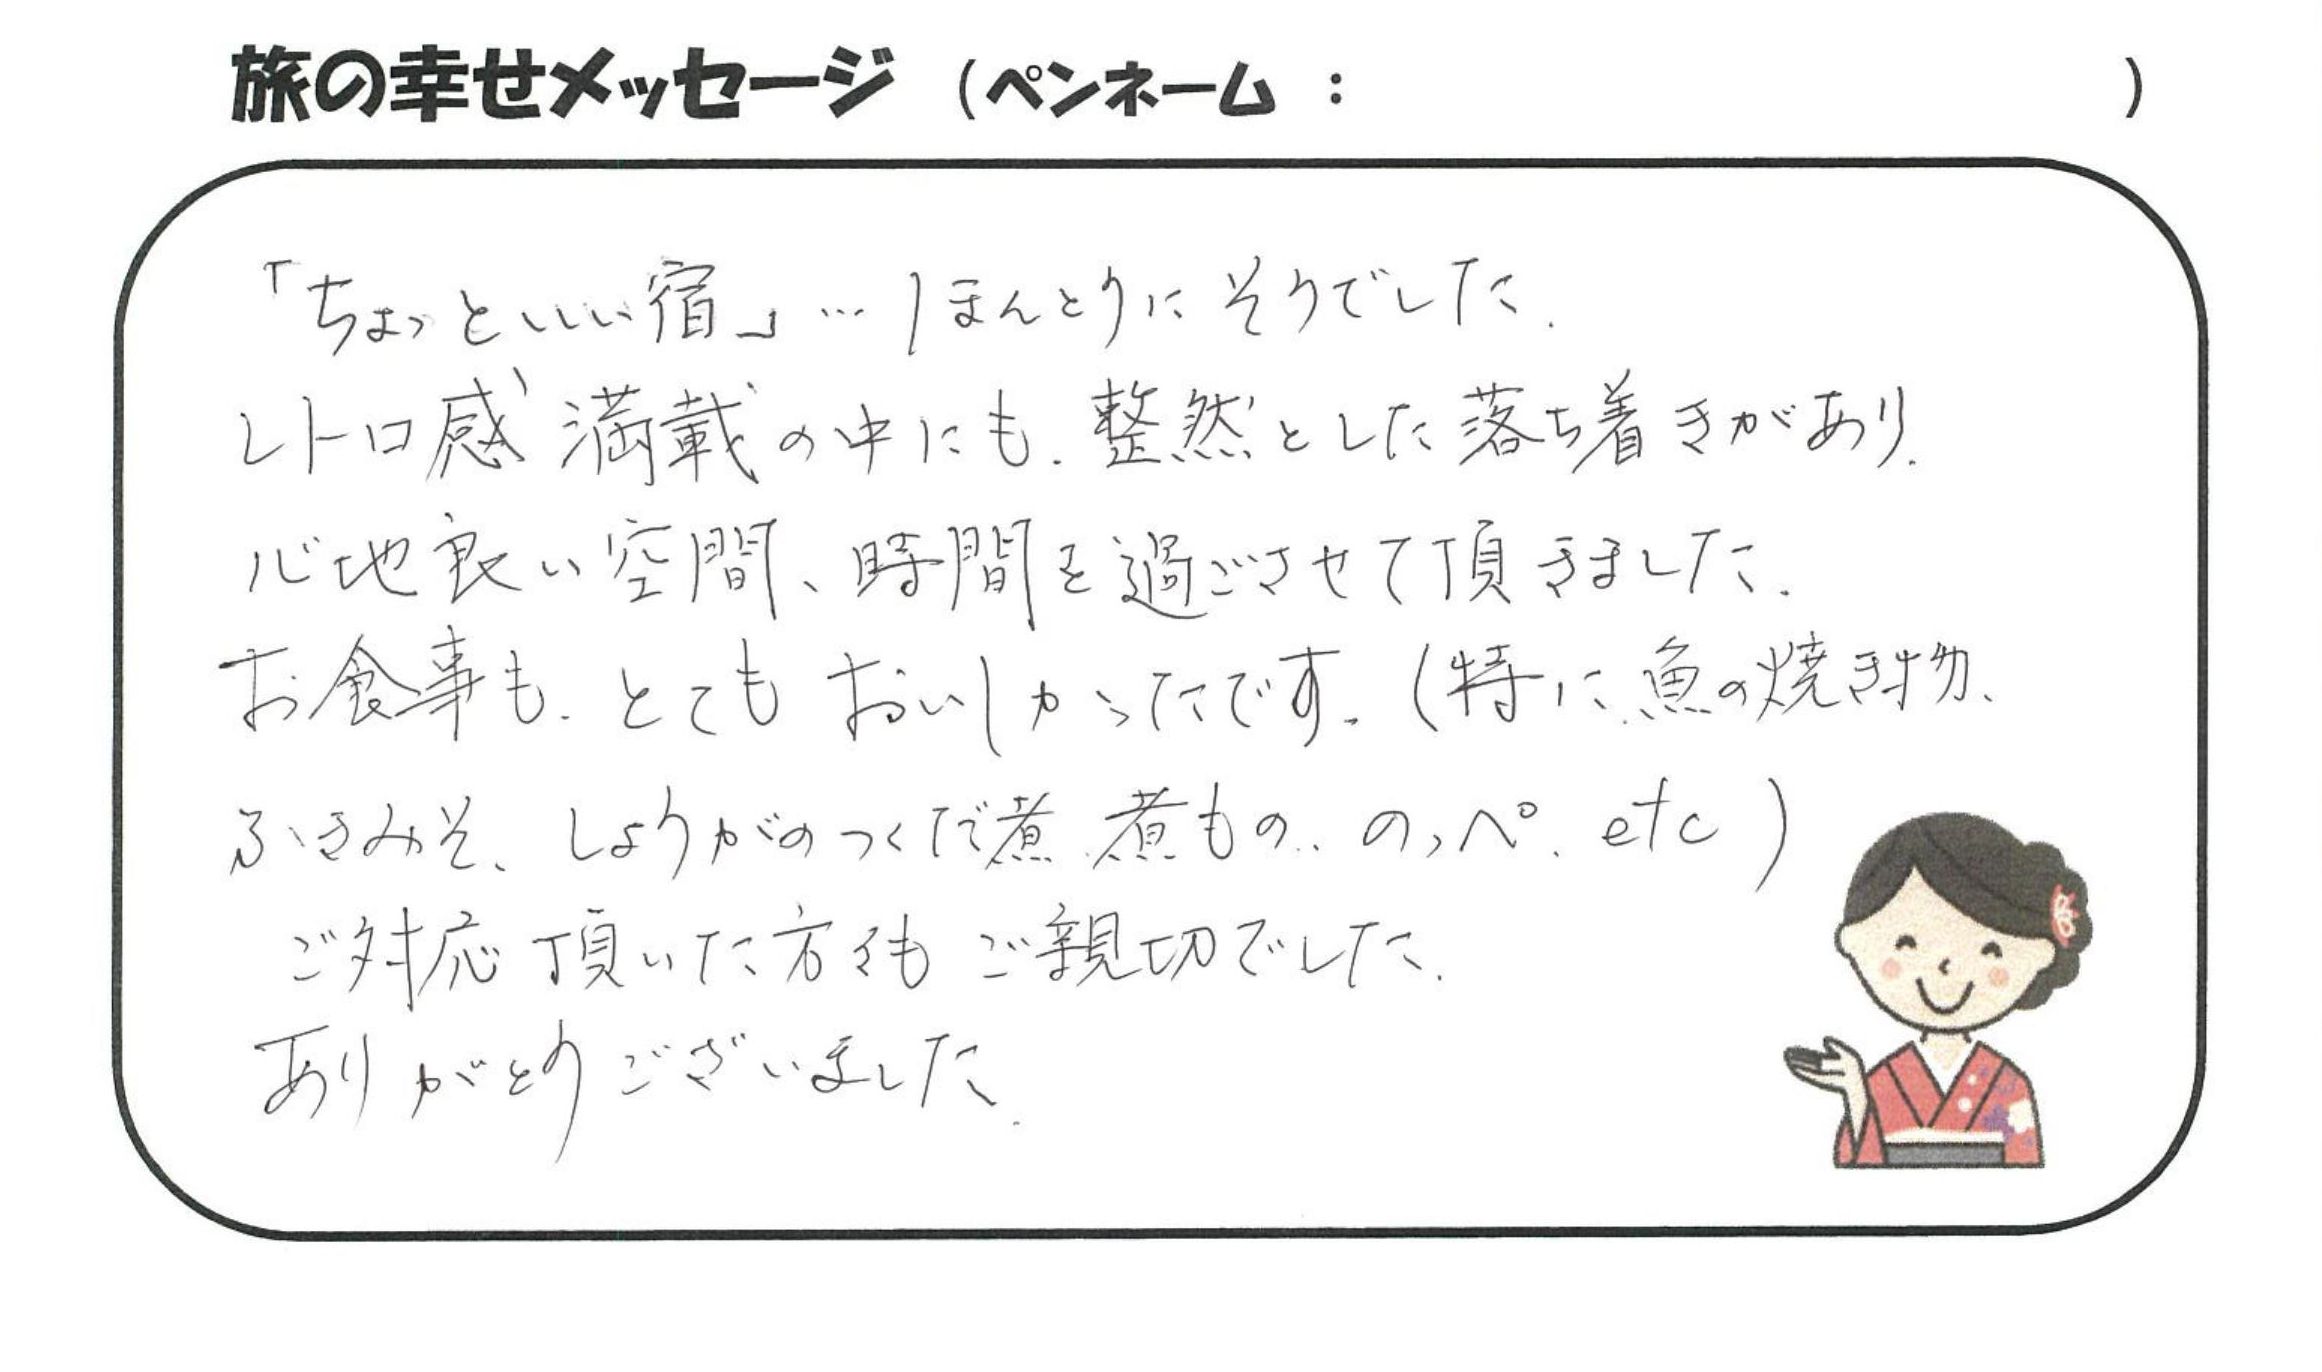 旅の幸せメッセージ (ペンネーム : )
「ちょっといい宿」… ほんとうにそうでした.
レトロ感満載の中にも. 整然とした落ち着きがあり.
心地良い空間、時間を過ごさせて頂きました.
お食事も. とてもおいしかったです. (特に. 魚の焼き物、
ふきみそ、しょうがのつくだ煮、煮もの、のっぺ. etc)
ご対応頂いた方々もご親切でした.
ありがとうございました.